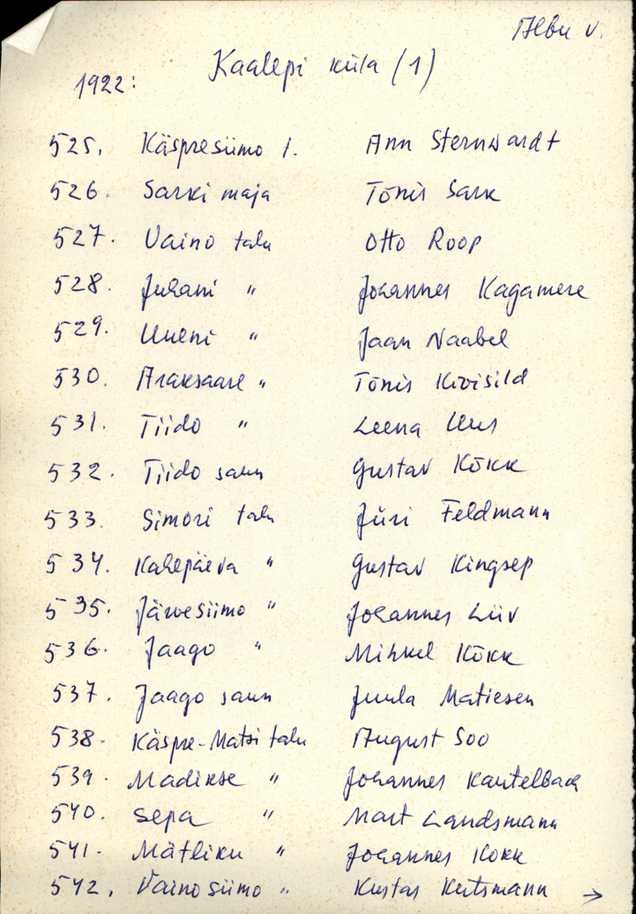 Albu v.
Kaalepi küla (1)
1922:
525. Käspresiimo 1. Ann Sternwardt
526. Sarki maja Tõnis Sark
527. Vaino talu Otto Roop
528. Juhani " Johannes Kagamere
529. Uueni " Jaan Naabel
530. Araksaare " Tõnis Kivisild
531. Tiido " Leena Uus
532. Tiido saun Gustav Kõkk
533. Simori talu Jüri Feldmann
534. Kahepäeva " Gustav Kingsep
535. Järwesiimo " Johannes Liiv
536. Jaago " Mihkel Kõkk
537. Jaago saun Juula Matiesen
538. Käspre-Matsi talu August Soo
539. Madikse " Johannes Kautelbach
540. Sepa " Mart Landsmann
541. Mätliku " Johannes Kokk
542. Vainosiimo " Kustas Keitsmann →